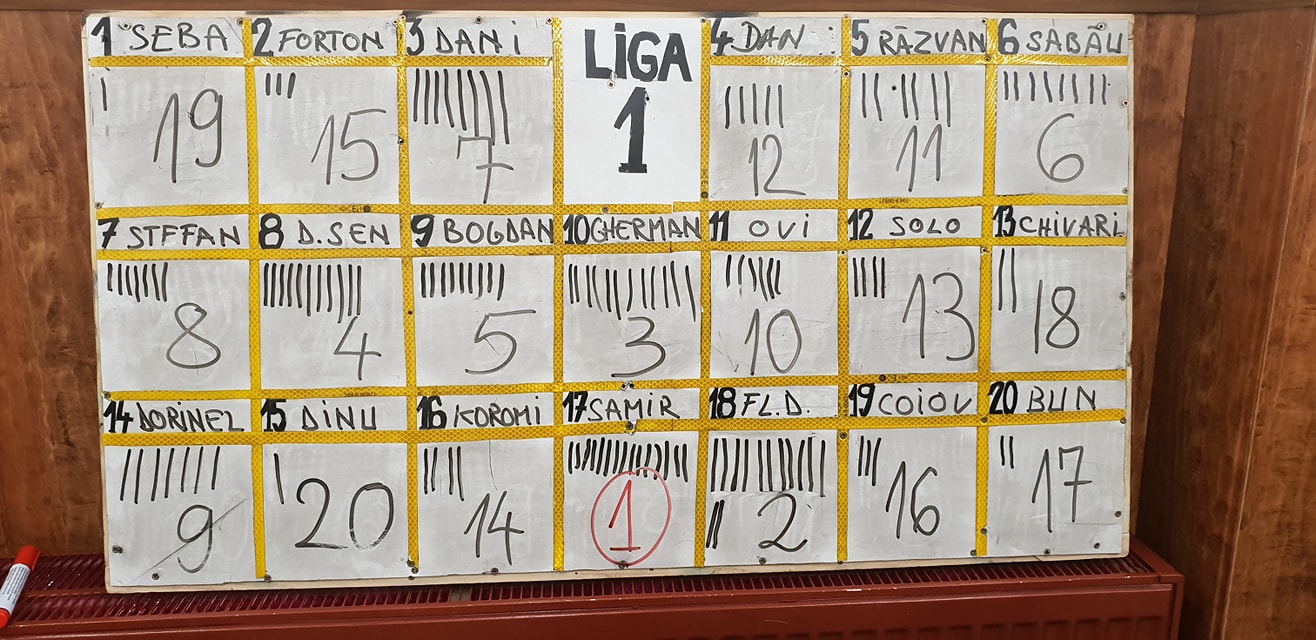 1 SEBA 2 FORTON 3 DANi LİGA 4 DAN 5 RĂZVAN 6 SABĂU
1
19 15 7 12 11 6
7 STEFAN 8 D.SEN 9 BOGDAN 10 GHERMAN 11 OVi 12 SOLO 13 CHIVARI
8 4 5 3 10 13 18
14 DORINEL 15 DINU 16 KOROMi 17 SAMIR 18 FL.D. 19 COIOV 20 BUN
9 20 14 1 2 16 17